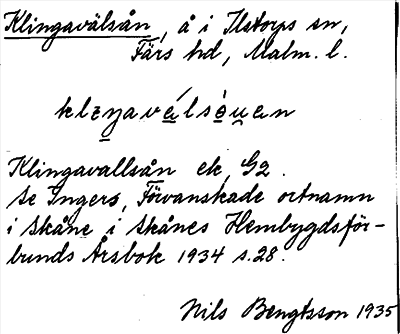 Klingavälsån, å i Ilstorps sn,
Färs hd, Malm. l.
Klingavallsån ek G2.
Se Ingers, Förvanskade ortnamn
i Skåne i Skånes Hembygdsför-
bunds Årsbok 1934 s. 28.
Nils Bengtsson 1935